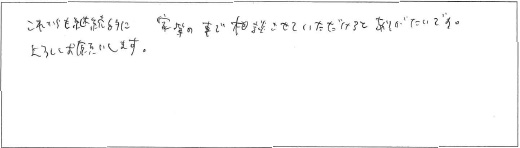 これからも継続的に 家賃の事で相談させていただけると ありがたいです。
よろしくお願いします。